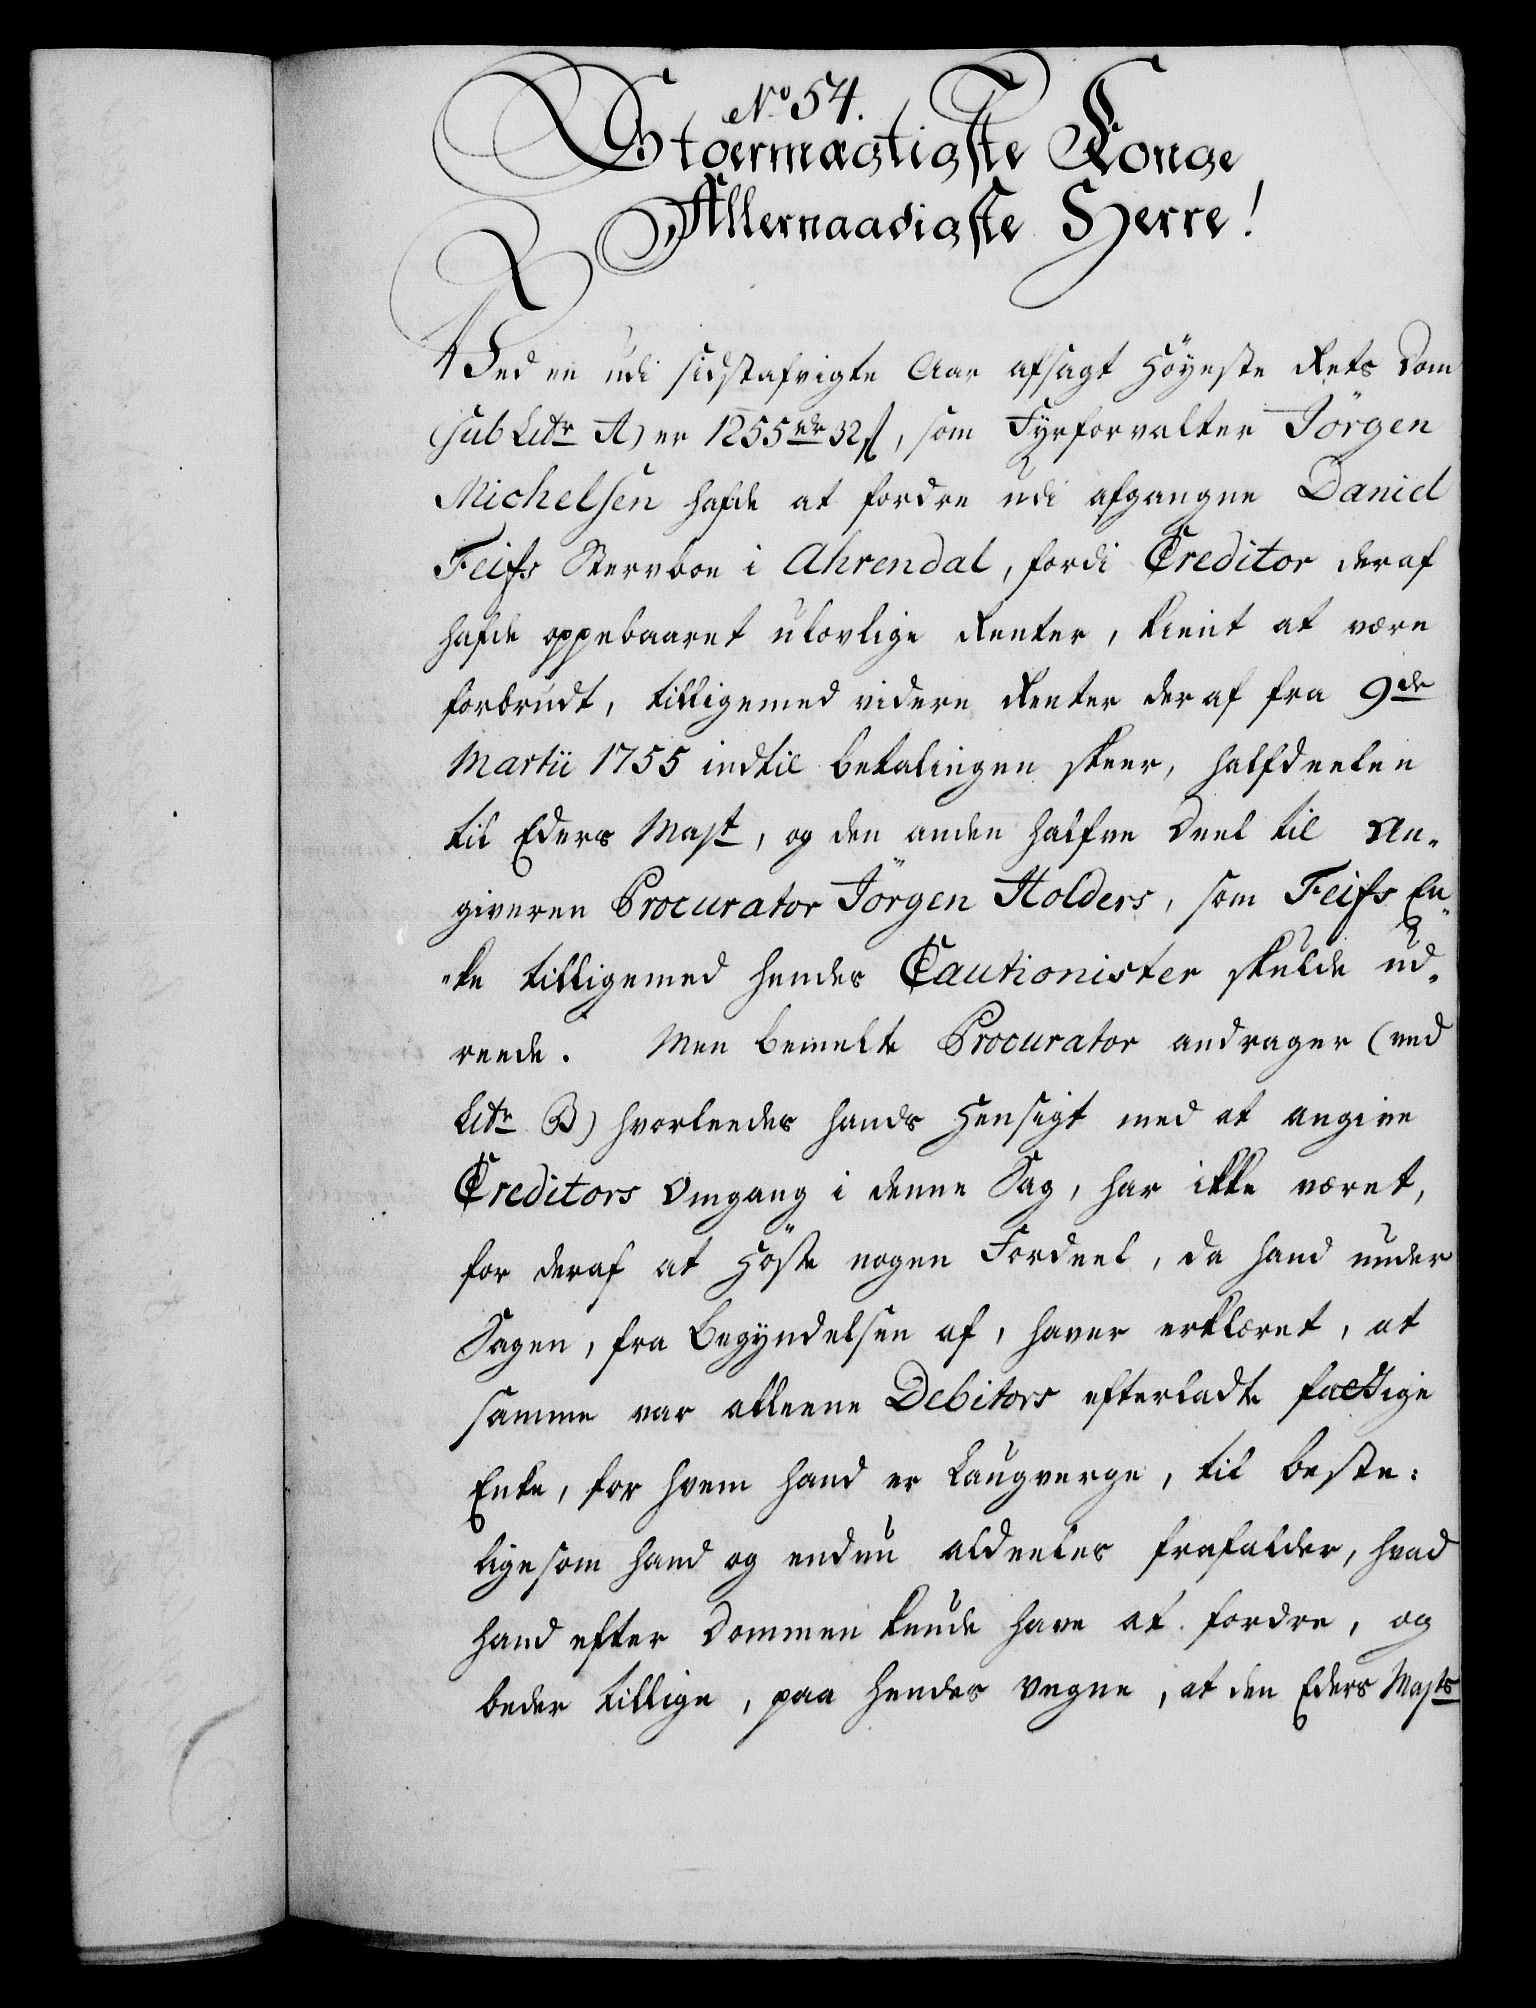 No 54.
Stoermægtigste Konge
Allernaadigste Herre!
Ved en udi sidstafvigte Aar afsagt Höyeste Rets Dom
(sub Litr A) er 1255 rdr 32 s, som Fyrforvalter Jörgen
Michelsen hafde at fordre udi afgangne Daniel
Feifs Stervboe i Ahrendal, fordi Creditor deraf
hafde oppebaaret ulovlige Renter, kient at være
forbrudt, tilligemed videre Renter deraf fra 9de
Martii 1755 indtil betalingen skeer, halfdeelen
til Eders Mayt, og den anden halfve Deel til An-
giveren Procurator Jörgen Holders, som Feifs En-
-ke tilligemed hendes Cautionister skulde ud-
reede. Men bemelte Procurator andrager (ved
Litr B) hvorleedes hands Hensigt med at angive
Creditors Omgang i denne Sag, har ikke været,
for deraf at Höste nogen Fordeel, da hand under
Sagen, fra Begyndelsen af, haver erklæret, at
samme var alleene Debitors efterladte fattige
Enke, for hvem hand er Laugverge, til beste:
ligesom hand og endnu aldeeles frafalder, hvad
hand efter Dommen kunde have at fordre, og
beder tillige, paa hendes Vegne, at den Eders Mayts